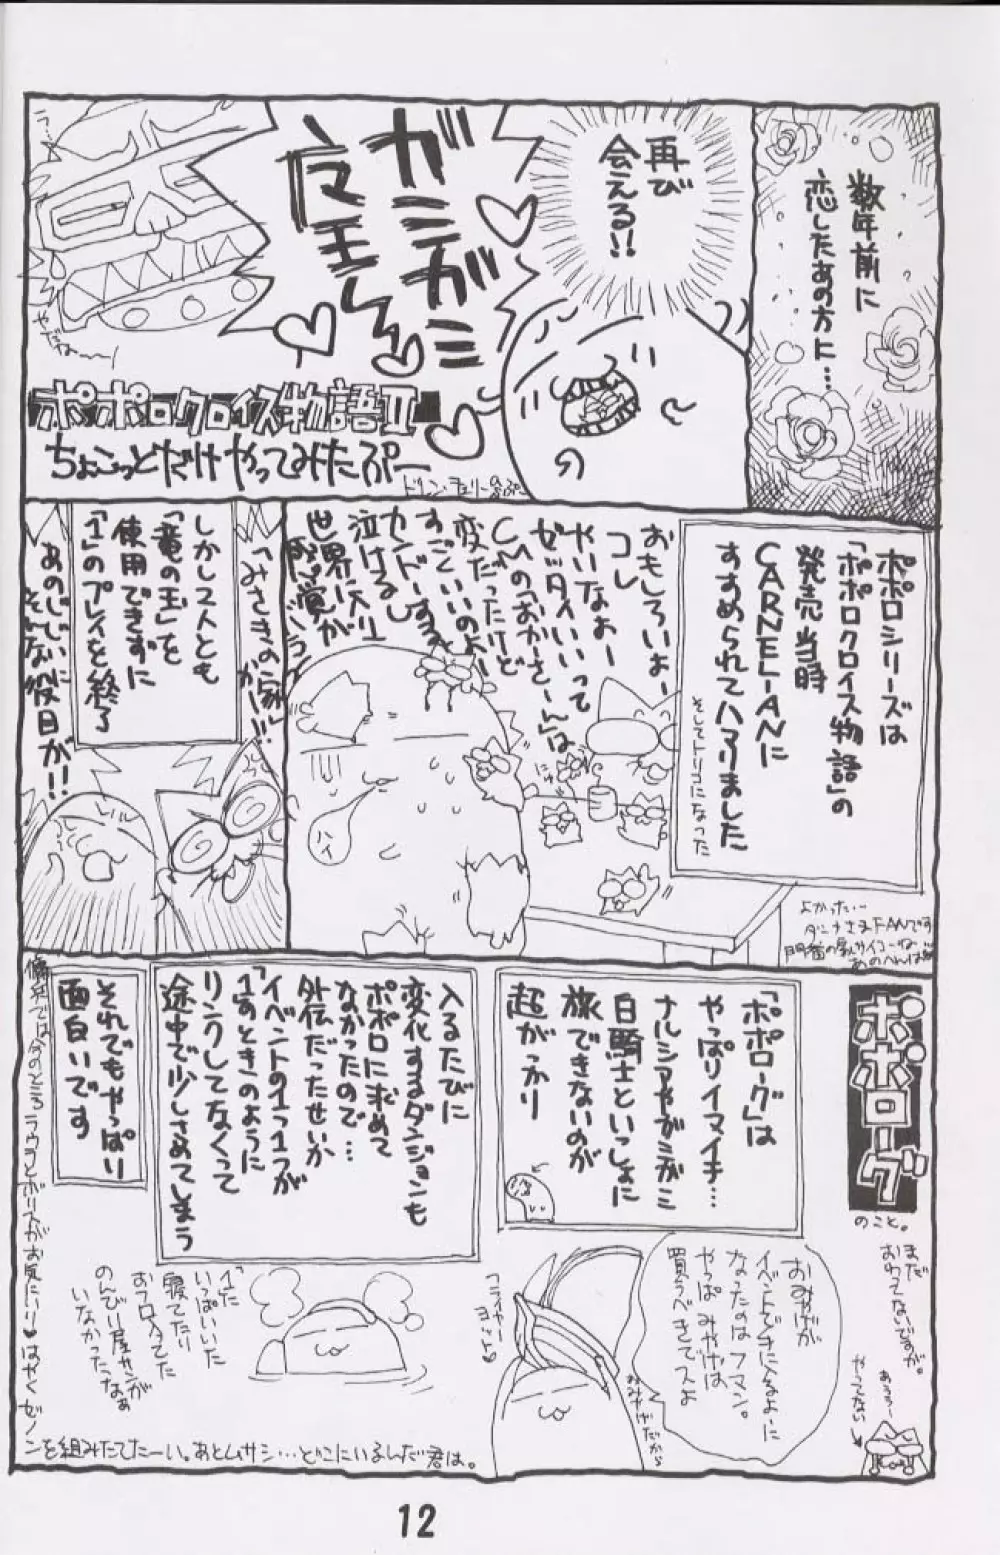 数年前に
恋したあの方に…
再び
会える!!
ガミガミ
魔王さん
ラ…
やだねー
ポポロクロイス物語II
ちょこっとだけやってみたぷー
ポポロシリーズは
「ポポロクロイス物語」の
発売当時
CARNELIANに
すすめられてハマりました
そしてトリコになった
おもしろいよー
コレ
やいなよー
ゼッタイいいって
CMの「おかーさーん」は
変だったけど
すごーいいのよー
カンドーするっ
泣けるし
世界に入り
ハイ
よかった…
「みさきの家」
がー!!!
しかし2人とも
「竜の玉」を
使用できずに
「1」のプレイを終了
あのじじいに
そんな役目が!!
ポポローグ
のこと。
まだ
おわってないですが。
あうぅ
やってない
「ポポローグ」は
やっぱりイマイチ…
ナルシアやガミガミ
白騎士といっしょに
旅できないのが
超がっかり
入るたびに
変化するダンジョンも
ポポロに求めて
なかったので…
外伝だったせいか
「イベントの1つ1つが
1」のときのように
リンクしてなくって
途中で少しさめてしまう
それでもやっぱり
面白いです
おみやげが
イベントで手に入るよーに
なったのはフマン。
やっぱみやげは
買うべきでスよ
おみやげだから
「1」に
いっぱいいた
寝てたり
おフロ入ってた
のんびり屋サンが
いなかったなぁ
傭兵では今のところラウラとボリスがお気にいり♥はやくゼノ
ンを組みたてたーい。あとムサシ…どこにいるんだ君は。
12